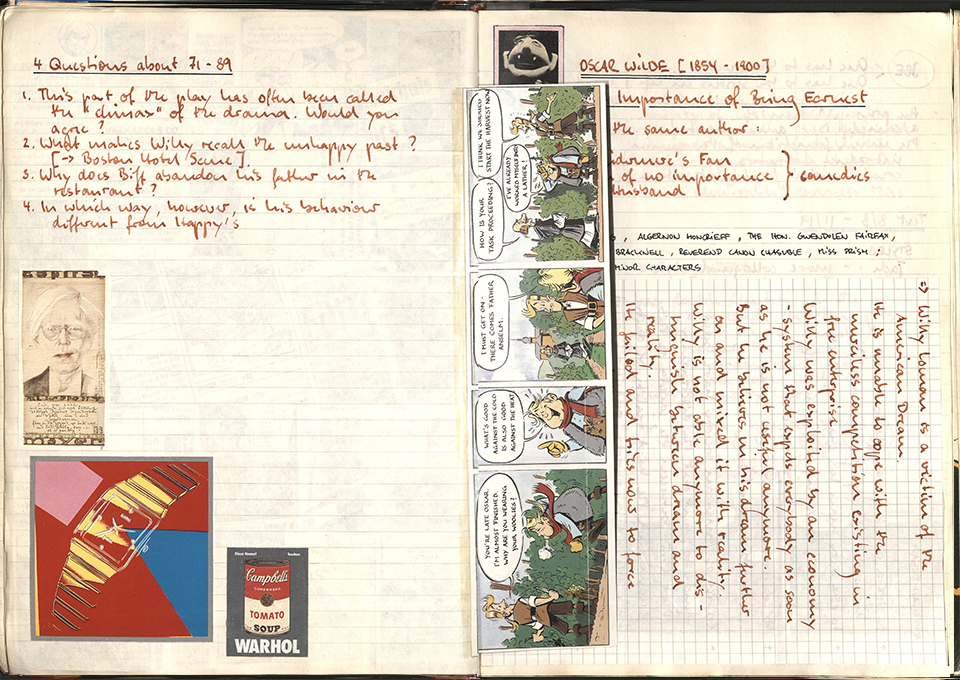 4 Questions about 71 - 89
1. This part of the play has often been called
the "climax" of the drama. Would you
agree ?
2. What makes Willy recall the unhappy past ?
[-> Boston Hotel / Scene].
3. Why does Biff abandon his father in the
restaurant ?
4. In which way, however, is his behaviour
different from Happy's
Campbell's
CONDENSED
TOMATO
SOUP
WARHOL
OSCAR WILDE [1854 - 1900]
Importance of Being Earnest
the same author :
Fan
of no importance
Husband
comedies
, ALGERNON MONCRIEFF , THE HON. GWENDOLEN FAIRFAX,
BRACKNELL , REVEREND CANON CHASUBLE , MISS PRISM ;
MINOR CHARACTERS
HOW IS YOUR
TASK PROCEEDING?
I THINK WE SHOULD
START THE HARVEST NOW
I'VE ALREADY
WORKED MYSELF INTO
A LATHER!
I MUST GET ON -
THERE COMES FATHER
ANSELM.
WHAT'S GOOD
AGAINST THE COLD
IS ALSO GOOD
AGAINST THE HEAT
YOU'RE LATE OSKAR.
I'M ALMOST FINISHED.
WHY ARE YOU WEARING
YOUR WOOLIES?
=> Willy Loman is a victim of the
American Dream.
He is unable to cope with the
merciless competition existing in
free enterprise
Willy was exploited by an economy
- system that expels everybody as soon
as he is not useful anymore.
But he believes in his dream further
on and mixed it with reality.
Willy is not able anymore to dis-
tinguish between dream and
reality.
He failed and tries now to force